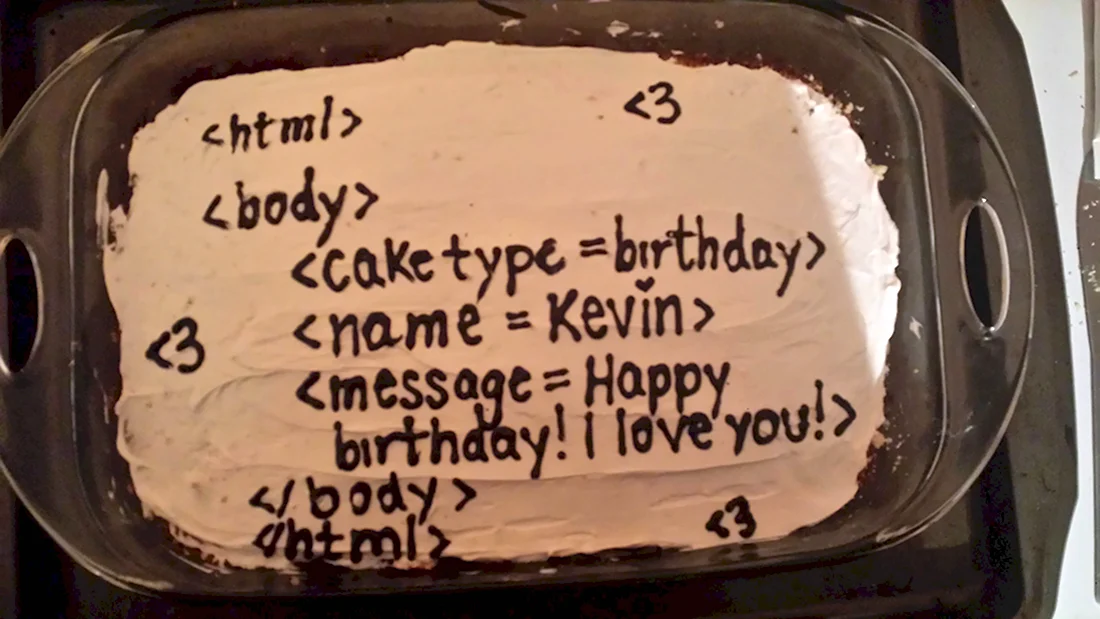 <html> <3
<body>
<cake type =birthday>
<name = Kevin>
<3
<message = Happy
birthday! I love you!>
</body>
</html> <3